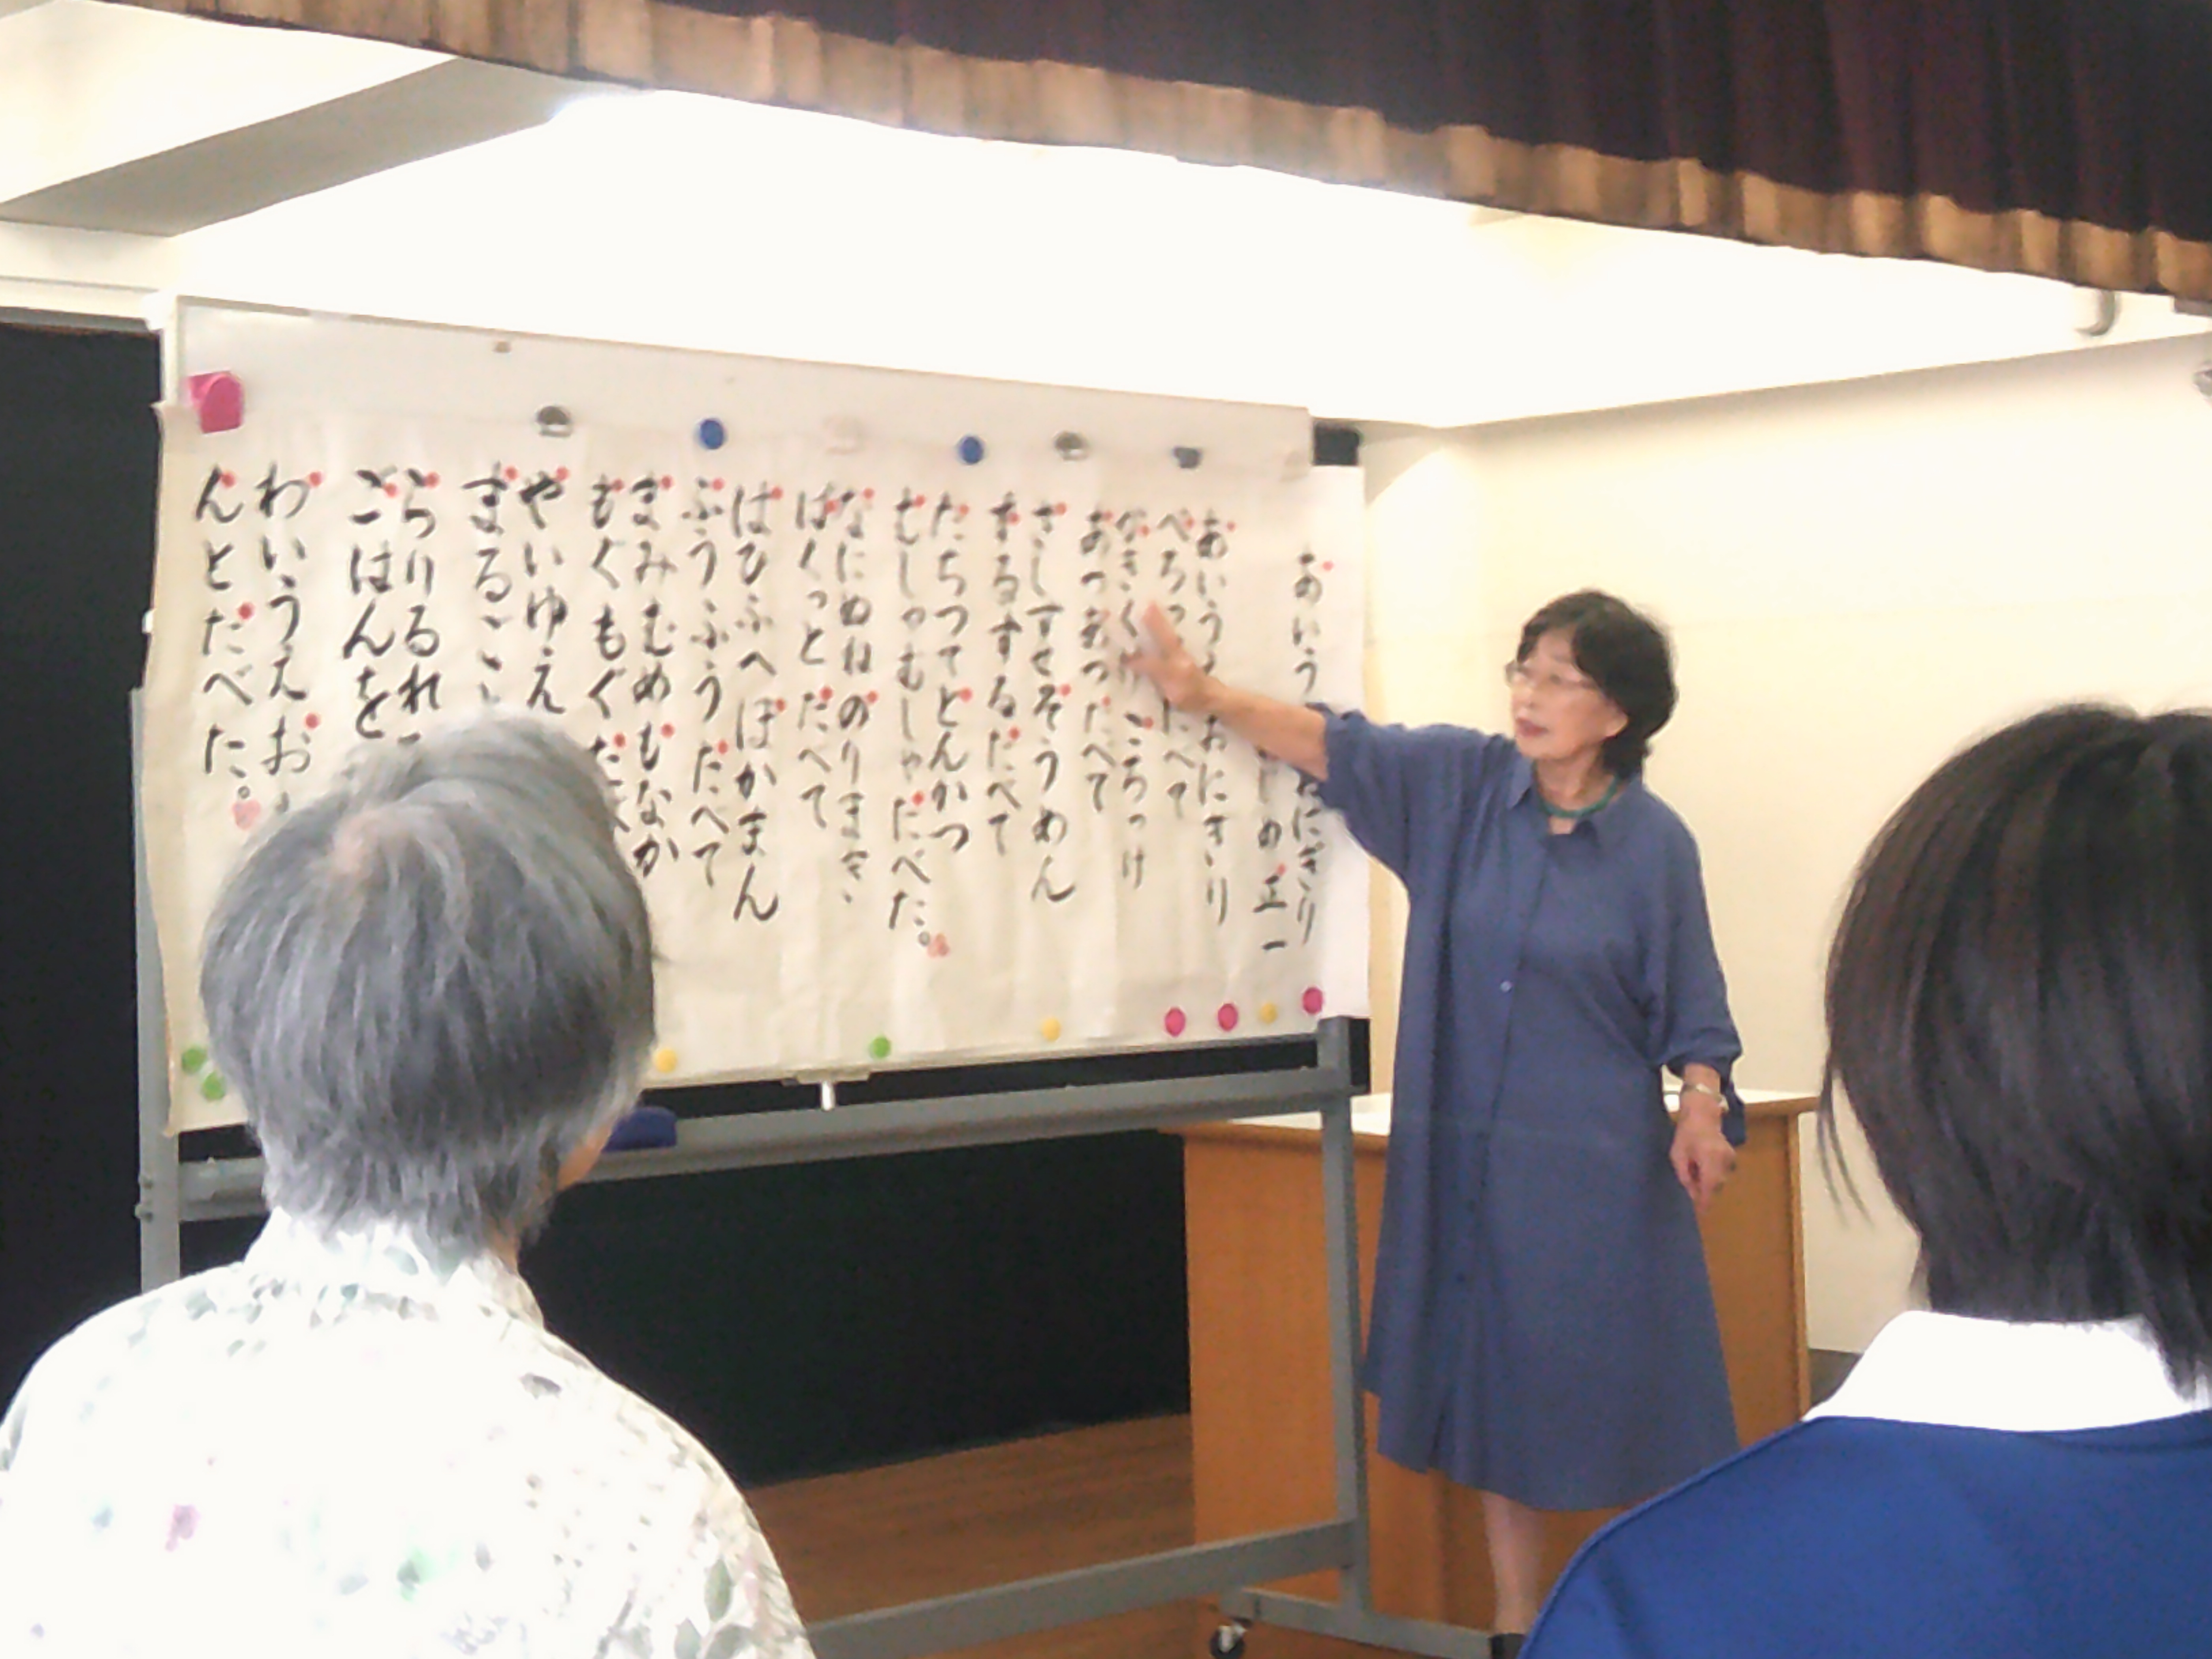 あいう おにぎり
正一
あいう おにぎり
ぺろっ たべて
かきくけ こロッケ
あつあつ たべて
さしすせそうめん
するするたべて
たちつてとんかつ
むしゃむしゃ たべた。
なにぬねのりまき
ぱくっと たべて
はひふへほかまん
ふうふう たべて
まみむめもなか
もぐもぐ
やいゆえ
まるご
らりるれ
ごはんを
わいうえお
んとたべた。